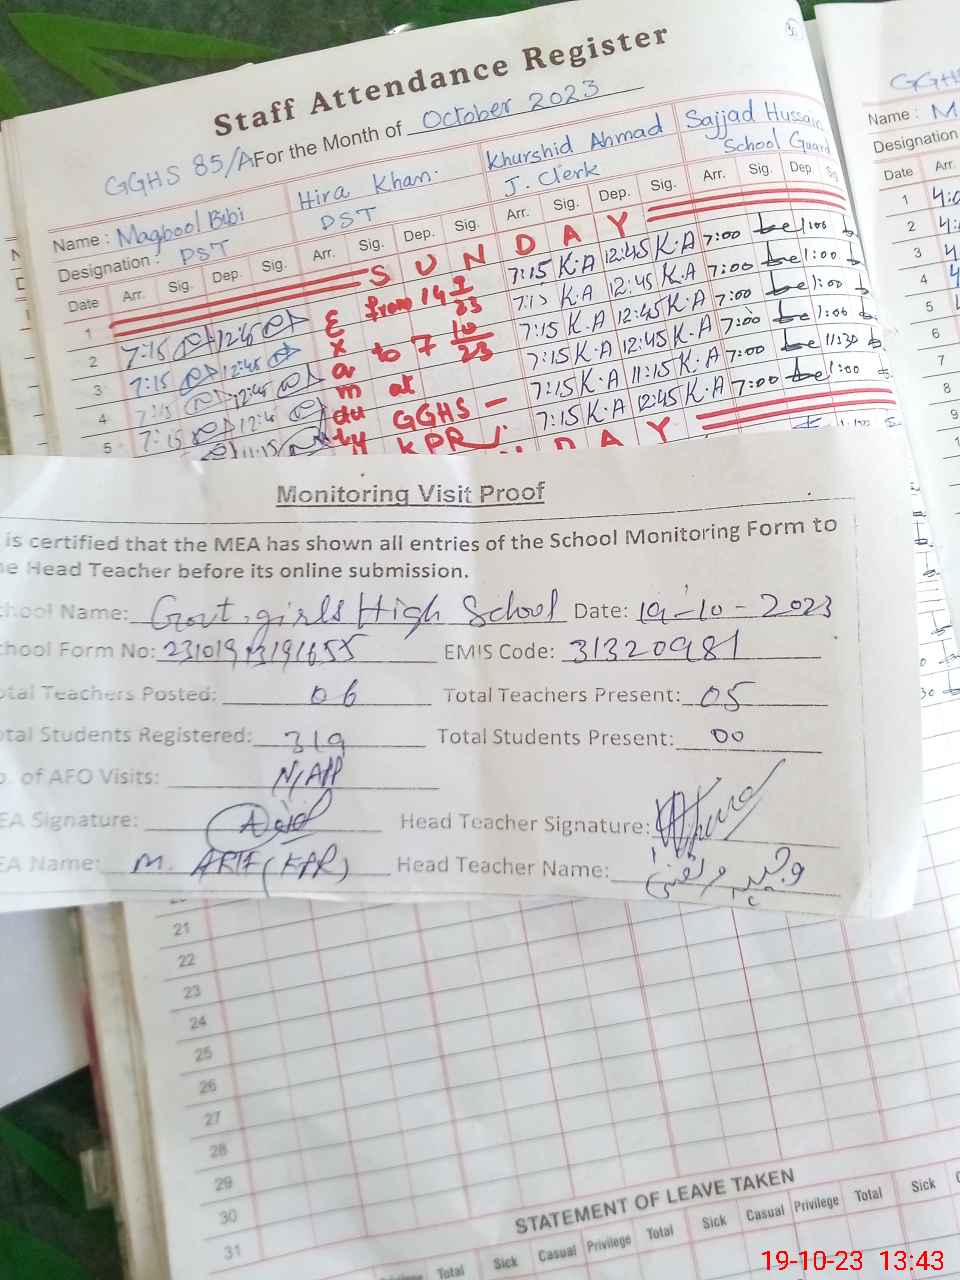 Staff Attendance Register
GGHS 85/A For the Month of October 2023
Name : Maqbool Bibi Hira Khan. Khurshid Ahmad Sajjad Hussain
Designation : PST DST J. Clerk School Guard
Date Arr. Sig. Dep. Sig. Arr. Sig. Dep. Sig. Arr. Sig. Dep. Sig. Arr. Sig. Dep. Sig.
1 S U N D A Y
2 7:15 12:45 7:15 K.A 12:45 K.A 7:00 1:00
3 7:15 12:45 7:15 K.A 12:45 K.A 7:00 1:00
4 7:15 12:45 7:15 K.A 12:45 K.A 7:00 1:00
5 7:15 12:45 7:15 K.A 12:45 K.A 7:00 1:00
11:15 7:15 K.A 11:15 K.A 7:00 11:30
7:15 K.A 12:45 K.A 7:00 1:00
Exam duty from 14 9/23
to 7 10/23
at
GGHS -
KPR
D A Y
GGHS
Name : M
Designation
Date Arr.
1
2
3
4
5
6
7
8
9
Monitoring Visit Proof
is certified that the MEA has shown all entries of the School Monitoring Form to
e Head Teacher before its online submission.
chool Name: Govt. girls High School Date: 19-10-2023
chool Form No: EMIS Code: 31320981
otal Teachers Posted: 06 Total Teachers Present: 05
otal Students Registered: 319 Total Students Present: 00
o. of AFO Visits: N/APP
EA Signature: Head Teacher Signature:
EA Name: M. ARIF (KPR) Head Teacher Name:
21
22
23
24
25
26
27
28
29
30
31
STATEMENT OF LEAVE TAKEN
Privilege Total Sick Casual Privilege Total Sick Casual Privilege Total Sick
19-10-23 13:43